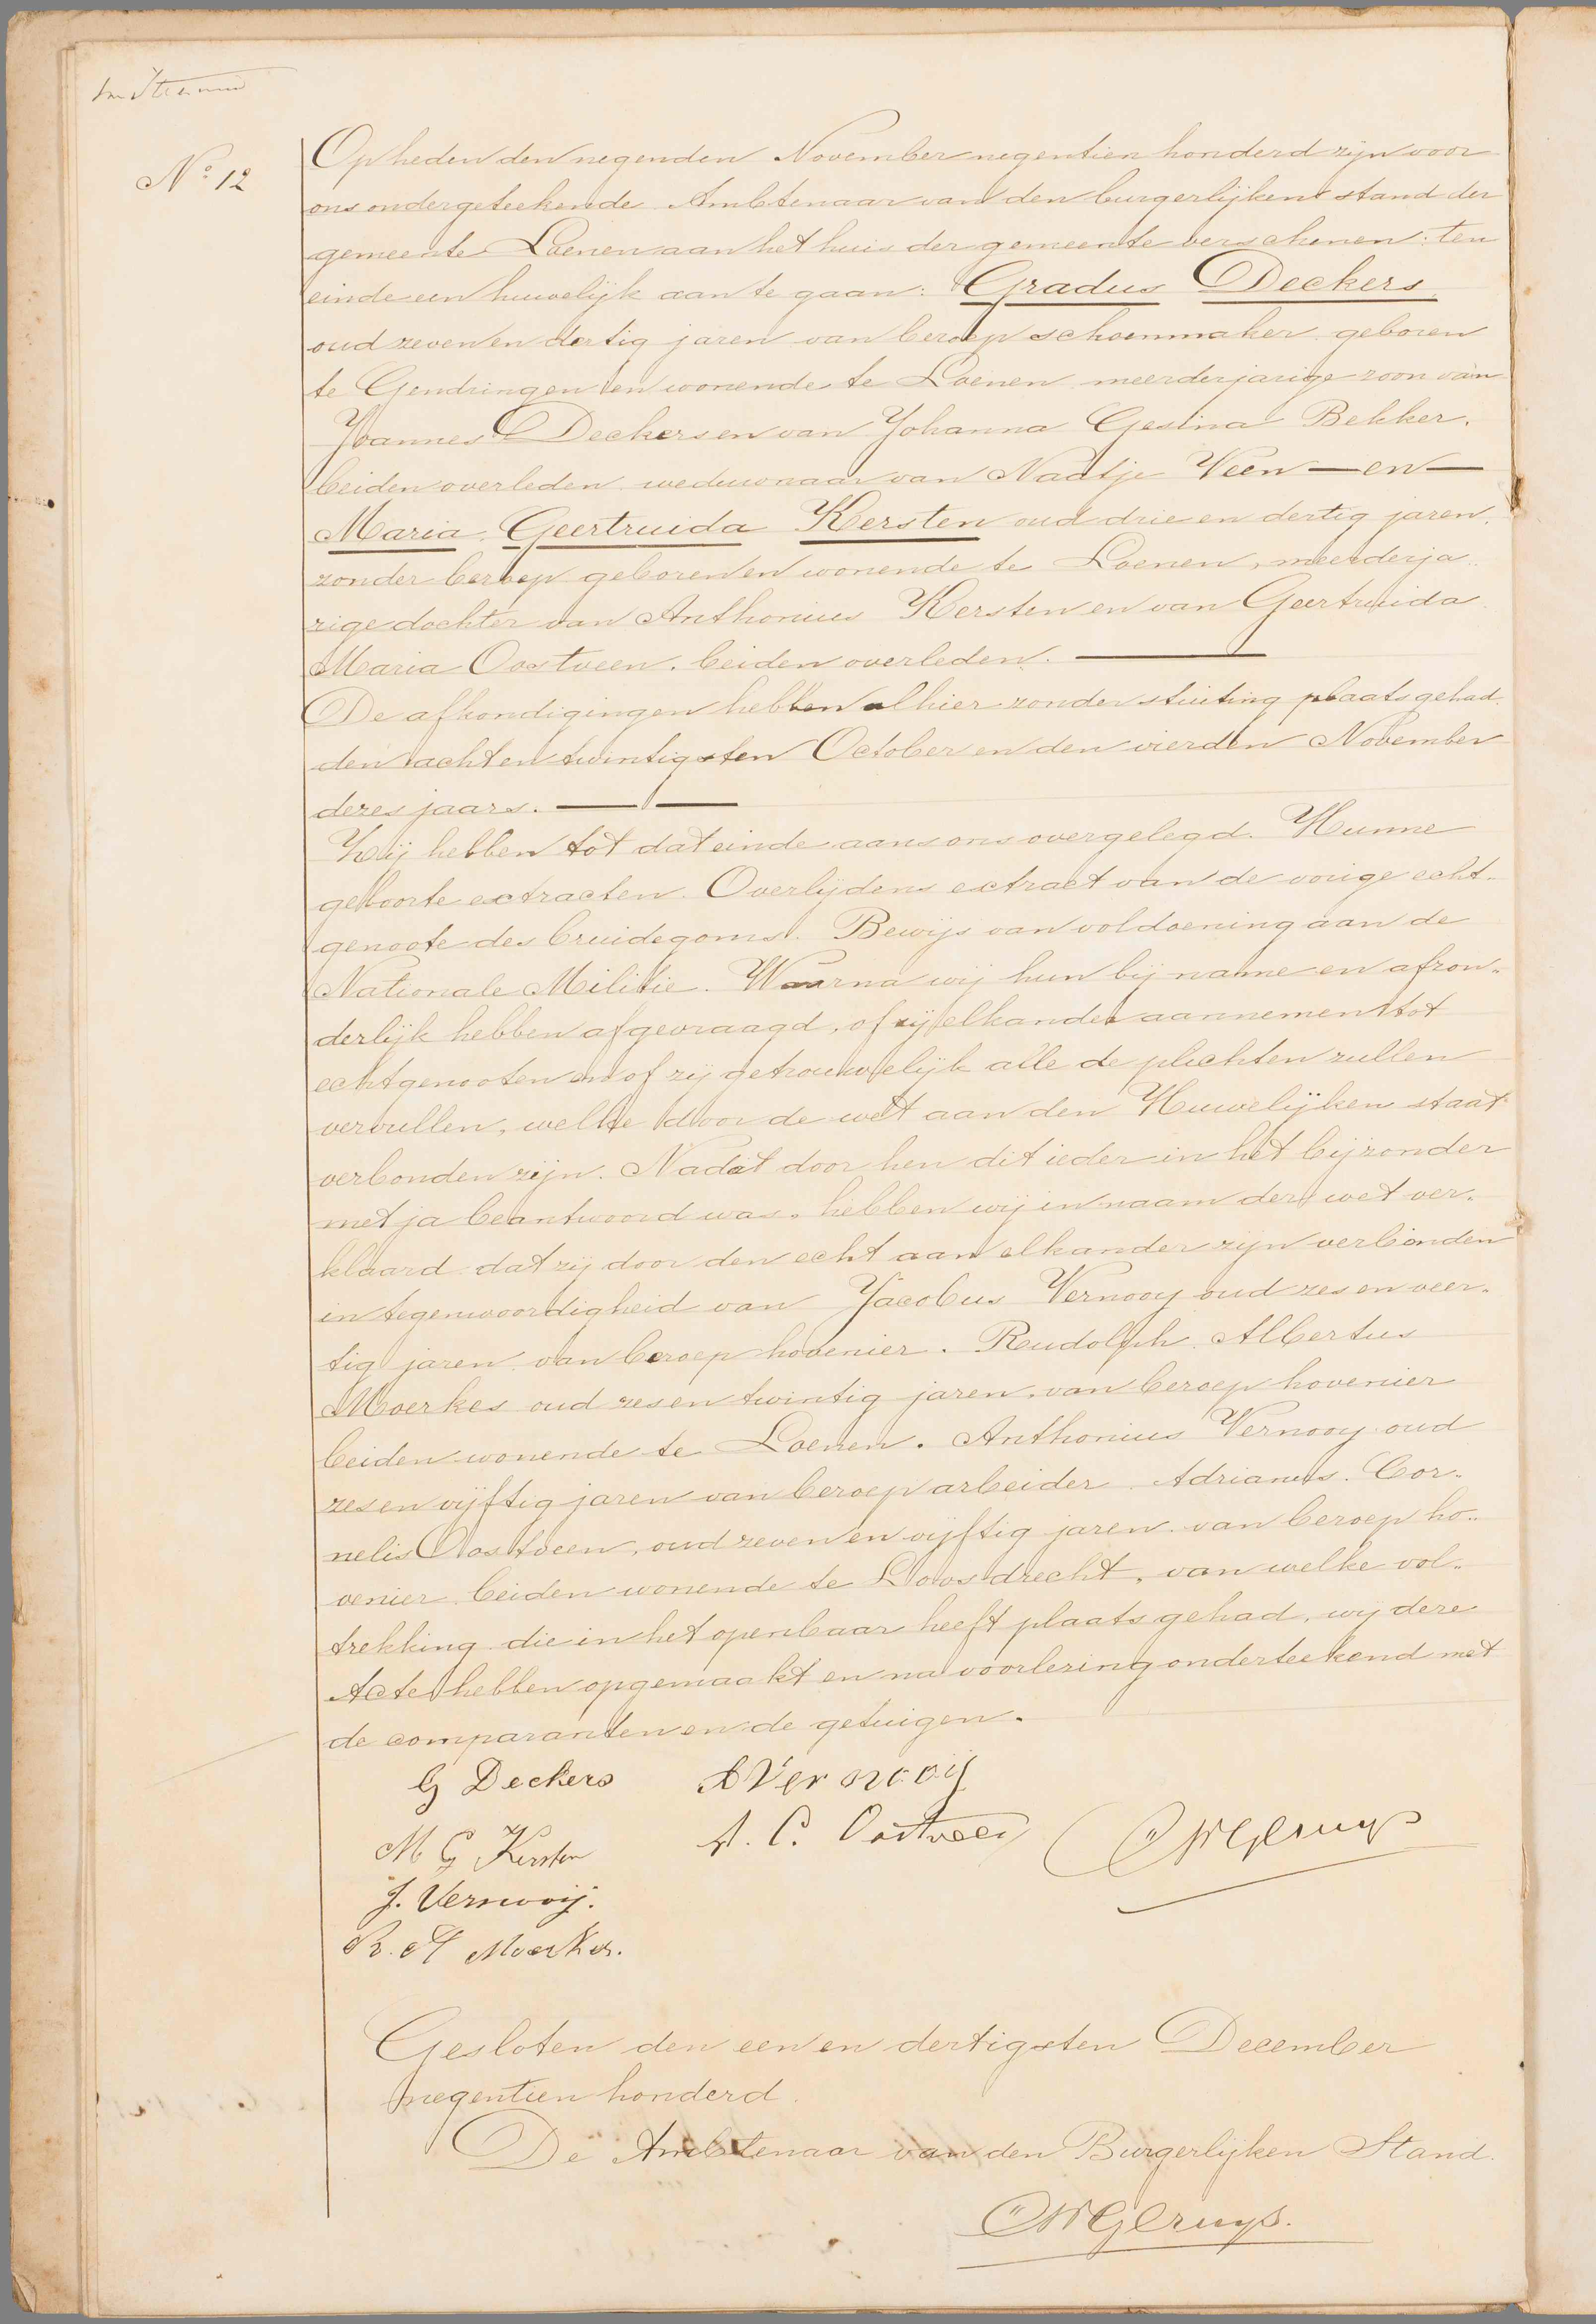 No 12
Op heden den negenden November negentien honderd zijn voor
ons ondergeteekende Ambtenaar van den burgerlijken stand der
gemeente Loenen aan het huis der gemeente verschenen: ten
einde een huwelijk aan te gaan: Gradus Deckers,
oud zeven en dertig jaren van beroep schoenmaker geboren
te Gendringen en wonende te Loenen meerderjarige zoon van
Joannes Deckers en van Johanna Gesina Bekker,
beiden overleden weduwnaar van Naatje Veen — en —
Maria Geertruida Kersten oud drie en dertig jaren,
zonder beroep geboren en wonende te Loenen, meerderja„
rige dochter van Anthonius Kersten en van Geertruida
Maria Oostveen. beiden overleden. —
De afkondigingen hebben alhier zonder stuiting plaats gehad
den acht en twintigsten October en den vierden November
dezes jaars. — —
Zij hebben tot dat einde aan ons overgelegd. Hunne
geboorte extracten. Overlijdens extract van de vorige echt„
genoote des bruidegoms. Bewijs van voldoening aan de
Nationale Militie. Waarna wij hun bij name en afzon„
derlijk hebben afgevraagd, of zij elkander aannemen tot
echtgenooten en of zij getrouwelijk alle de plichten zullen
vervullen, welke door de wet aan den Huwelijken staat
verbonden zijn. Nadat door hen dit ieder in het bijzonder
met ja beantwoord was, hebben wij in naam der wet ver„
klaard dat zij door den echt aan elkander zijn verbonden
in tegenwoordigheid van Jacobus Vernooy oud zes en veer„
tig jaren van beroep hovenier. Rudolph Albertus
Moerkes oud zes en twintig jaren, van beroep hovenier
beiden wonende te Loenen. Anthonius Vernooy oud
zes en vijftig jaren van beroep arbeider Adrianus Cor„
nelis Oostveen, oud zeven en vijftig jaren van beroep ho„
venier beiden wonende te Loosdrecht, van welke vol„
trekking die in het openbaar heeft plaats gehad, wij deze
Acte hebben opgemaakt en na voorlezing onderteekend met
de comparanten en de getuigen.
G Deckers
A Vernooij
M G Kersten
A. C. Oostveen
J. Vernooij.
R. A Moerkes.
Gesloten den een en dertigsten December
negentien honderd.
De Ambtenaar van den Burgerlijken Stand.